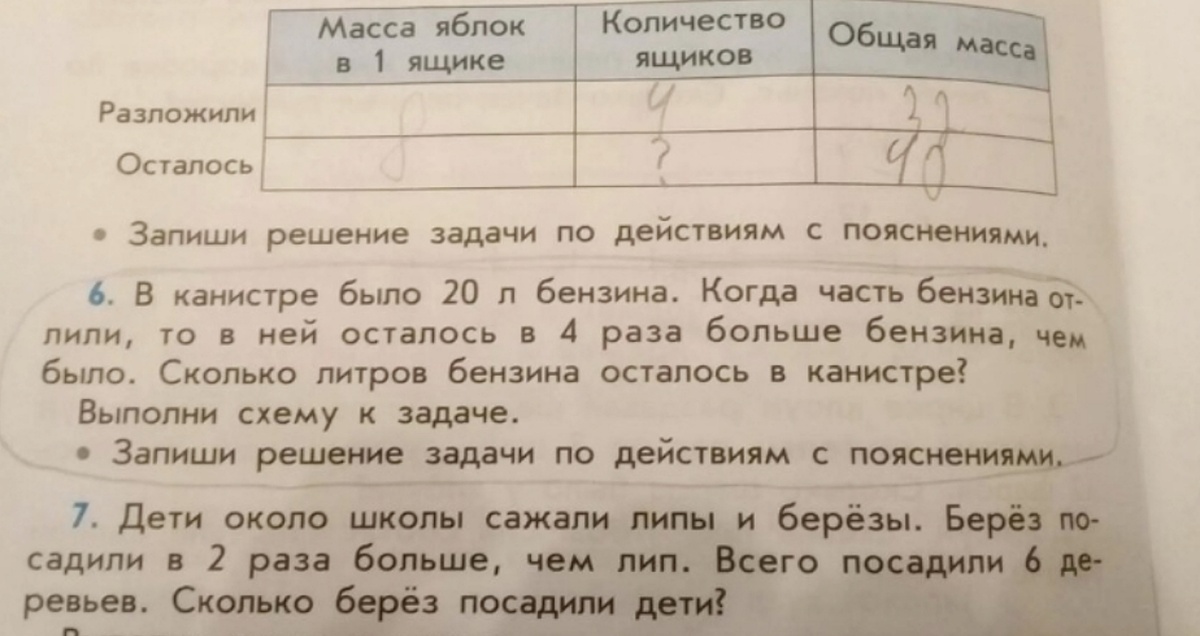 Масса яблок
в 1 ящике
Количество
ящиков
Общая масса
Разложили
8
4
32
Осталось
?
40
• Запиши решение задачи по действиям с пояснениями.
6. В канистре было 20 л бензина. Когда часть бензина от-
лили, то в ней осталось в 4 раза больше бензина, чем
было. Сколько литров бензина осталось в канистре?
Выполни схему к задаче.
• Запиши решение задачи по действиям с пояснениями.
7. Дети около школы сажали липы и берёзы. Берёз по-
садили в 2 раза больше, чем лип. Всего посадили 6 де-
ревьев. Сколько берёз посадили дети?